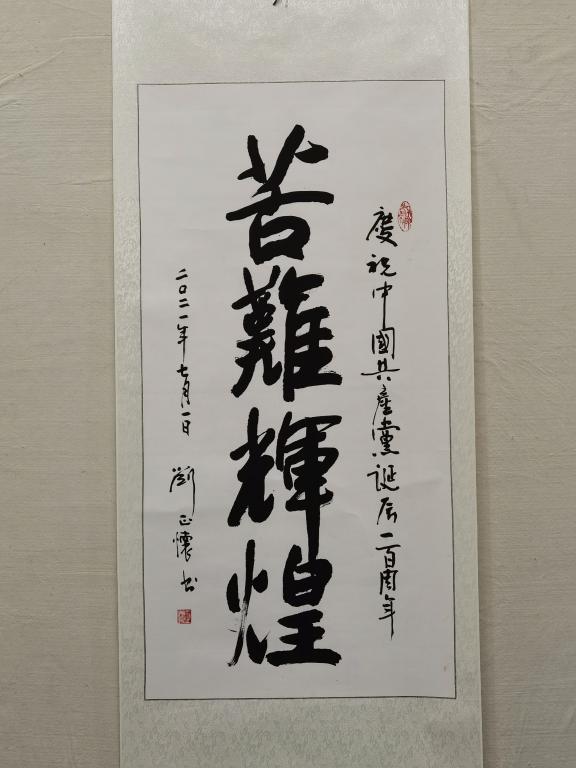 慶祝中國共產黨誕辰一百周年
苦難輝煌
二〇二一年七月一日
劉正懷书